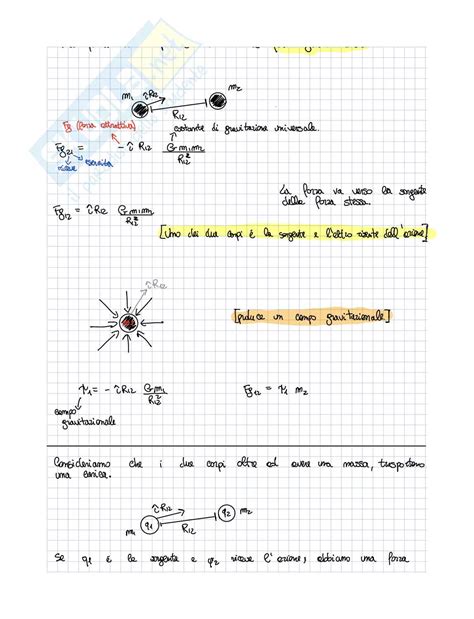 m₁ îR₁₂ R₁₂ m₂
Fg (forza attrattiva)
costante di gravitazione universale.
Fg₂₁ = - îR₁₂ G m₁ m₂ / R₁₂²
riceve sorgente
La forza va verso la sorgente
della forza stessa.
Fg₁₂ = îR₁₂ G m₁ m₂ / R₁₂²
[Uno dei due corpi è la sorgente e l'altro risente dell'azione]
îR₁₂
[produce un campo gravitazionale]
= - îR₁₂ G m₁ / R₁₂²
Fg₁₂ = m₂
campo
gravitazionale
Consideriamo che i due corpi oltre ad avere una massa, trasportano
una carica.
m₁ q₁ îR₁₂ R₁₂ q₂ m₂
Se q₁ è la sorgente e q₂ riceve l'azione, abbiamo una forza